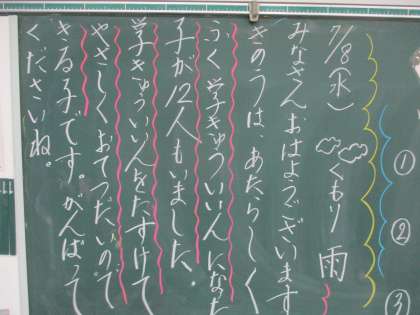 7/8(水) くもり 雨
みなさんおはようございます
きのうは、あたらしく
ふく学きゅういいんになった
子が12人もいました。
学きゅういいんをたすけて
やさしくおてつだいので
きる子です。がんばって
くださいね。
①
②
③